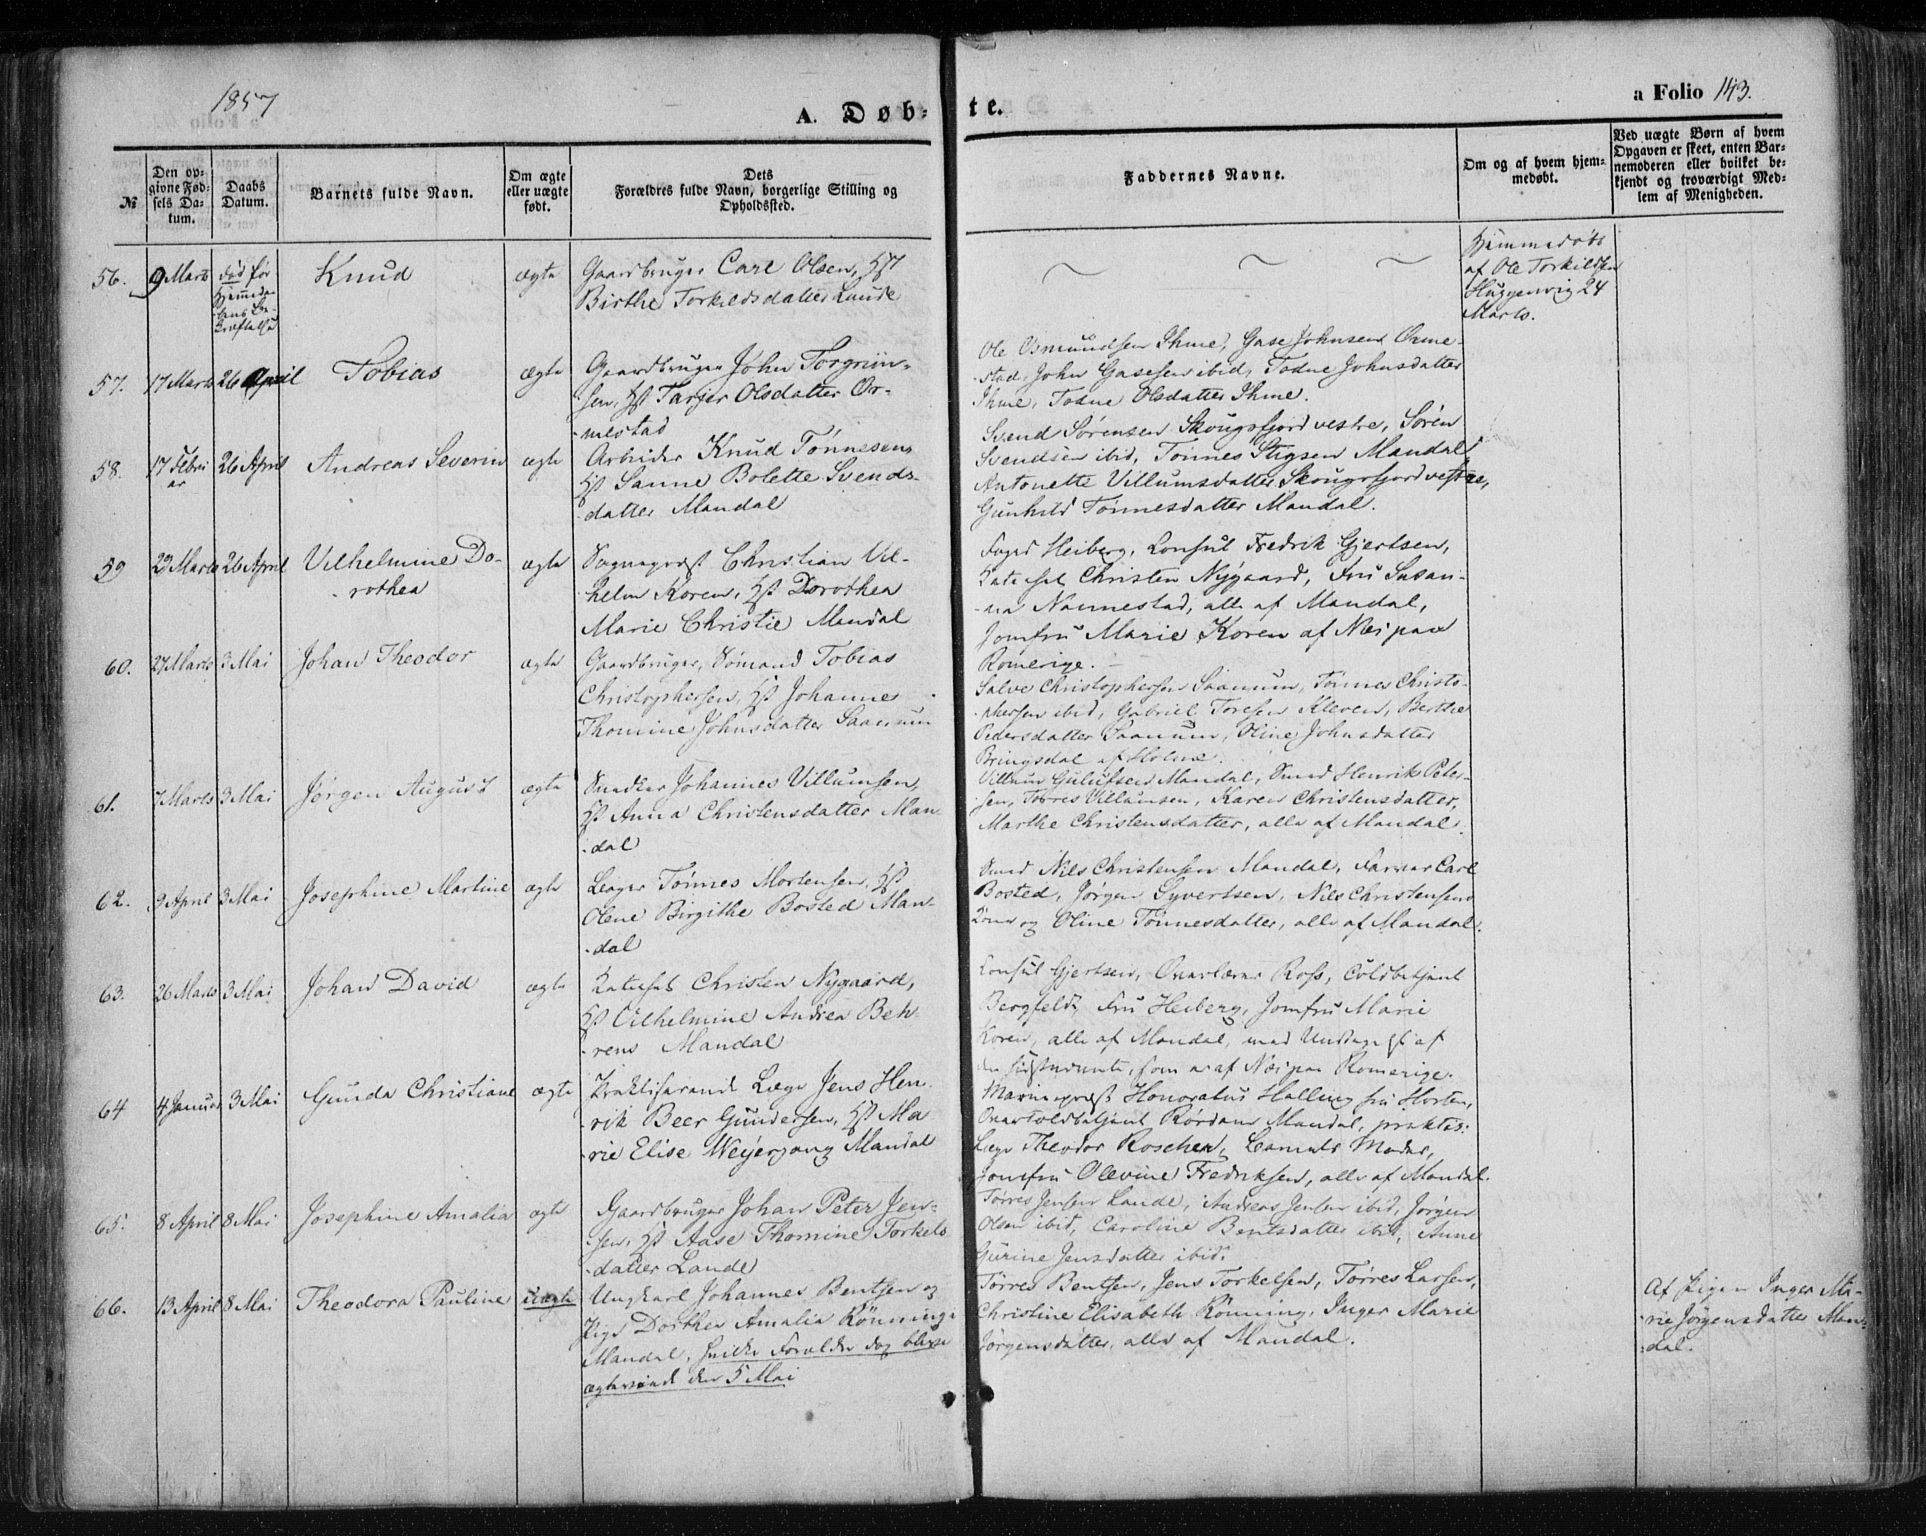 1857
A. Døb-
te.
a Folio 143.
№
Den op-
givne Fød-
sels Da-
tum.
Daabs
Datum.
Barnets fulde Navn.
Om ægte
eller uægte
født.
Dets
Forældres fulde Navn, borgerlige Stilling og
Opholdssted.
Faddernes Navne.
Om og af hvem hjem-
medøbt.
Ved uægte Børn af hvem
Opgaven er skeet, enten Bar-
nemoderen eller hvilket be-
kjendt og troværdigt Med-
lem af Menigheden.
56.
9 Marts
død før
Hjemmedaa-
bens Be-
kræftelse
Knud
ægte
Gaardbruger Carl Olsen, Hst
Birthe Torkildsdatter Lande
Hjemmedøbt
af Ole Torkildsen
Huggenvig 24
Marts.
57.
17 Marts
26 April
Tobias
ægte
Gaardbruger John Torgrim-
sen, Hst Tarjer Olsdatter Or-
mestad
Ole Osmundsen Ihme, Gase Johnsen Orme-
stad, John Gasesen ibid, Todne Johnsdatter
Ihme, Todne Olsdatter Ihme.
58.
17 Febru
ar
26 April
Andreas Severin
ægte
Arbeider Knud Tønnesen,
Hst Sanne Bolette Svends-
datter Mandal
Svend Sørensen Skougsfjord vestre, Søren
Svendsen ibid, Tønnes Stigsen Mandal,
Antonette Villumsdatter Skougsfjord vestre,
Gunhild Tønnesdatter Mandal.
59
29 Marts
26 April
Vilhelmine Do-
rothea
ægte
Sognepræst Christian Vil-
helm Koren, Hst Dorothea
Marie Christie Mandal
Foged Heiberg, Consul Fredrik Gjertsen,
Kateket Christen Nygaard, Fru Susan-
na Nannestad, alle af Mandal,
Jomfru Marie Koren af Næs paa
Romerige.
60.
27 Marts
3 Mai
Johan Theodor
ægte
Gaardbruger, Sømand Tobias
Christophersen, Hst Johanne
Thomine Johnsdatter Saanum
Salve Christophersen Saanum, Tønnes Christo-
phersen ibid, Gabriel Toresen Kleven, Berthe
Pedersdatter Saanum, Oline Johnsdatter
Bringsdal af Holme.
61.
7 Marts
3 Mai
Jørgen August
ægte
Snedker Johannes Villumsen,
Hst Anna Christensdatter Man-
dal
Villum Gulufsen Mandal, Smed Henrik Peter-
sen, Torres Villumsen, Karen Christensdatter,
Marthe Christensdatter, alle af Mandal.
62.
9 April
3 Mai
Josephine Martine
ægte
Tønnes Mortensen, Hst
Olene Birgithe Bosted Man-
dal
Smed Nils Christensen Mandal, Farver Carl
Bosted, Jørgen Syvertsen, Nils Christensens
Kone og Oline Tønnesdatter, alle af Mandal.
63.
26 Marts
3 Mai
Johan David
ægte
Kateket Christen Nygaard,
Hst Vilhelmine Andrea Beh-
rens Mandal
Consul Gjertsen, Overlærer Ross, Toldbetjent
Bergfeldt, Fru Heiberg, Jomfru Marie
Koren, alle af Mandal, med Undtagelse af
den sidstnævnte, som er af Næs paa Romerige.
64
4 Januar
3 Mai
Gunda Christiane
ægte
Praktiserende Læge Jens Hen-
rik Beer Gundersen, Hst Ma-
rie Elise Weyergang Mandal
Marinepræst Honoratus Halling fra Horten,
Overtoldbetjent Rørdam Mandal, praktis:
Læge Theodor Roscher, Barnets Moder,
Jomfru Olevine Fredriksen, alle af Mandal.
65.
8 April
8 Mai
Josephine Amalia
ægte
Gaardbruger Johan Peter Jen-
sen, Hst Aase Thomine Torkels-
datter Lande
Tørres Jensen Lande, Andreas Jensen ibid, Jørgen
Olsen ibid, Caroline Bentsdatter ibid, Anne
Gurine Jensdatter ibid.
66.
13 April
8 Mai
Theodora Pauline
uægte
Ungkarl Johannes Bentsen og
Pige Dorthea Amalia Rønning
Mandal, hvilke Forældre dog bleve
ægteviede den 5 Mai
Tørres Bentsen, Jens Torkelsen, Tørres Larsen,
Christine Elisabeth Rønning, Inger Marie
Jørgensdatter, alle af Mandal.
Af Pigen Inger Ma-
rie Jørgensdatter Man-
dal.